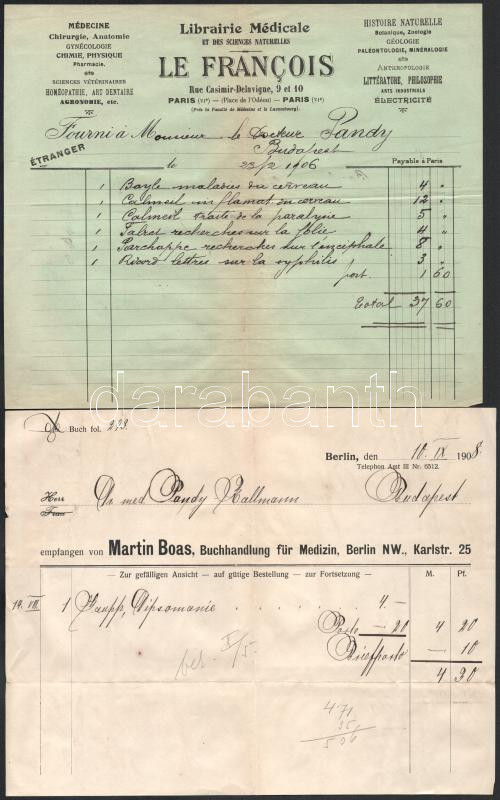 MÉDECINE
Chirurgie, Anatomie
GYNÉCOLOGIE
CHIMIE, PHYSIQUE
Pharmacie.
SCIENCES VÉTÉRINAIRES
HOMÉOPATHIE, ART DENTAIRE
AGRONOMIE, etc.
Librairie Médicale
ET DES SCIENCES NATURELLES
LE FRANÇOIS
Rue Casimir-Delavigne, 9 et 10
PARIS (VIe) — (Place de l'Odéon) — PARIS (VIe)
(Près la Faculté de Médecine et le Luxembourg)
HISTOIRE NATURELLE
Botanique, Zoologie
GÉOLOGIE
PALÉONTOLOGIE, MINÉRALOGIE
ANTHROPOLOGIE
LITTÉRATURE, PHILOSOPHIE
ARTS INDUSTRIELS
ÉLECTRICITÉ
Fourni à Monsieur le Docteur Pandy
Budapest
ÉTRANGER
le 22/2 1906
Payable à Paris
1 Bayle maladies du cerveau 4 "
1 Calmeil inflamat du cerveau 12 "
1 Calmeil Traité de la paralysie 5 "
1 Falret recherches sur la folie 4 "
1 Parchappe recherches sur l'encéphale 8 "
1 Ricord lettres sur la syphilis 3 "
port 1 60
Total 37 60
darabanth
Buch fol. 223.
Berlin, den 10. IX 1908.
Telephon Amt III Nr. 6512.
Herr
Frau
Dr med Pandy Kallmann Budapest
empfangen von Martin Boas, Buchhandlung für Medizin, Berlin NW., Karlstr. 25
— Zur gefälligen Ansicht — auf gütige Bestellung — zur Fortsetzung — M. Pf.
14. VII. 1 Gaupp, Dipsomanie . . . . . . 4.—
Porto — 20 4 20
Briefporto — 10
4 30
bez. X/5.
471
35
506